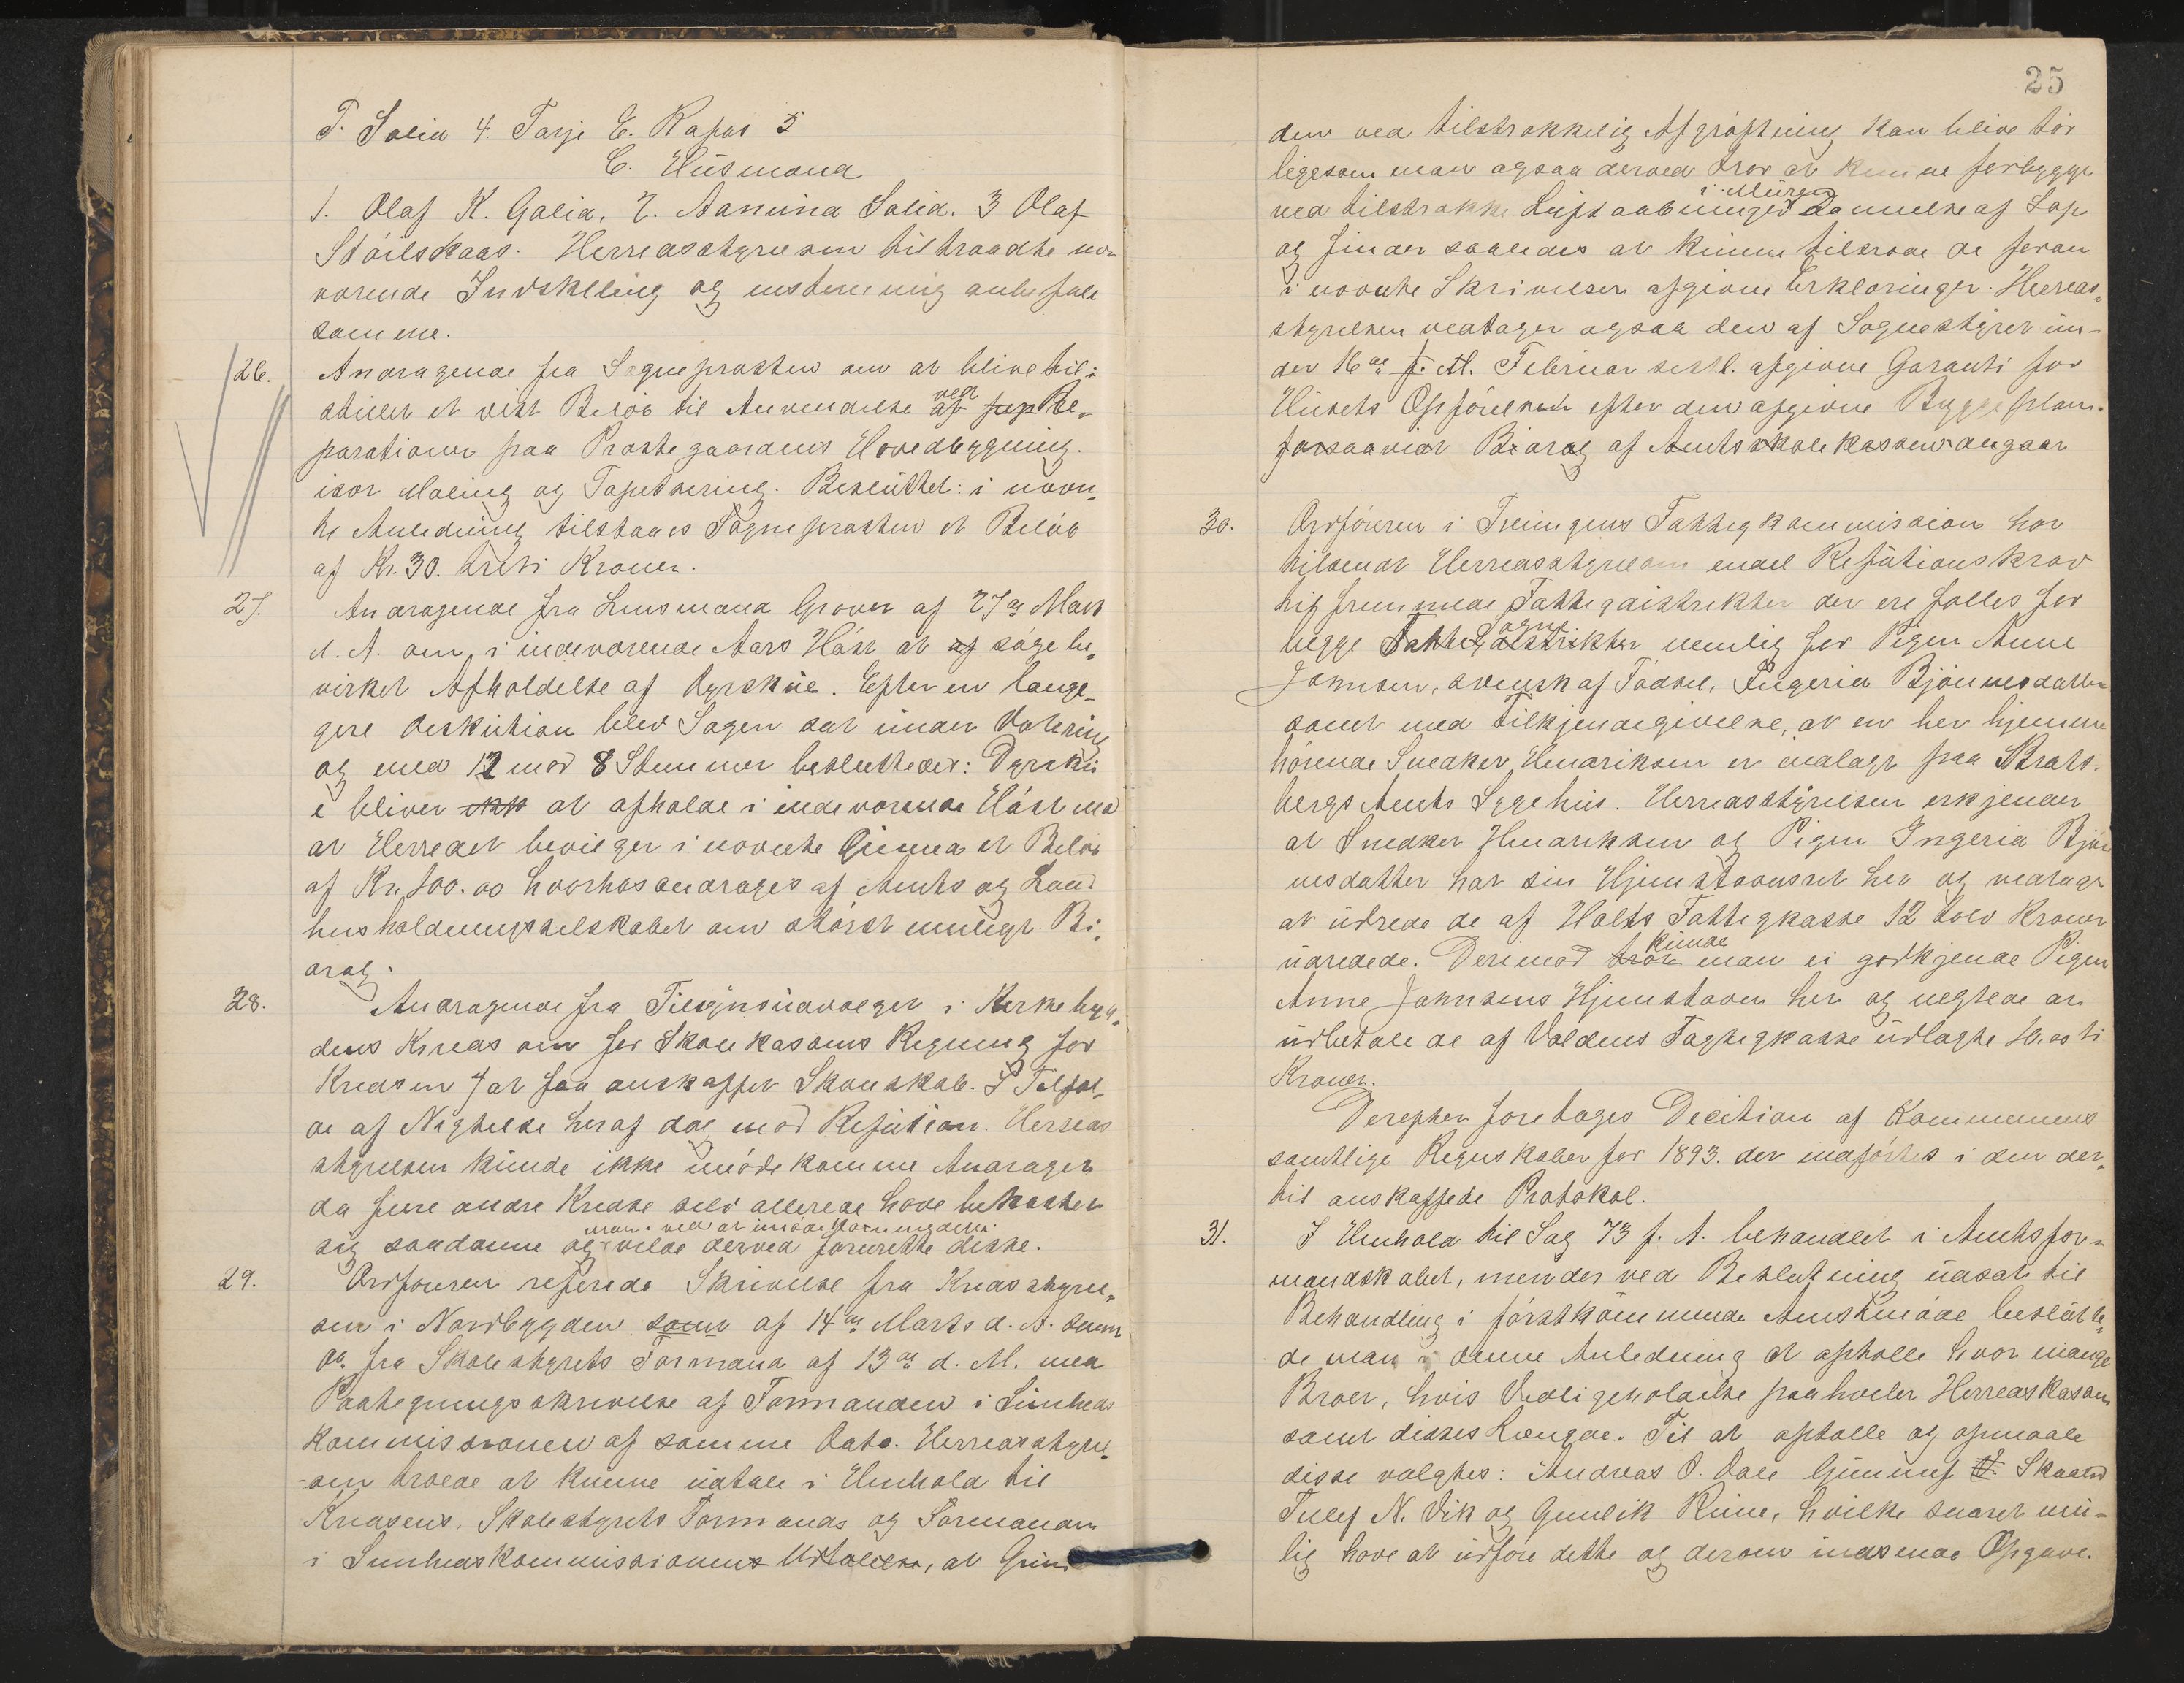 T. Solid 4. Tarje E. Rafos 5
C. Husmænd
1. Olaf K. Galid, 2. Aanund Solid. 3 Olaf
Stöilskaas. Herredsstyrelsen tiltraadte nær-
værende Indstilling og enstemmig anbefale
samme.
26. Andragende fra Sogneprosten om at blive til-
stillet et vist Beløb til Anvendelse ved Re-
parationer paa Prostegaardens Hovedbygning.
især Maling og Tapetsering. Besluttet: i nævn-
te Anledning tilstaaes Sogneprosten et Beløb
af Kr. 30. treti Kroner.
27. Andragende fra Lensmand Grover af 27de Mars
d. A. om, i indeværende Aars Høst at søge be-
virket Afholdelse af Dyrskue. Efter en længe-
gere Diskution blev Sagen sat under Votering
og med 12 mod 8 Stemmer besluttedes: Dyrsku
e bliver at afholde i indeværende Høst med
at Herredet bevilger i nævnte Øiemed et Beløb
af Kr. 100.00 hvorhos andrages af Amts og Land
husholdningsselskabet om størst muligt Bi-
drag.
28. Andragende fra Tilsynsudvalget i Kirkebyg-
dens Kreds om for Skolekassens Regning for
Kredsen at faa anskaffet Skoleskab. I Tilfæl-
de af Nægtelse heraf dog mod Refution. Herreds
styrelsen kunde ikke imødekomme Andraget
da flere andre Kredse selv allerede have bekostet
man ved at imødekomme dette
sig saadanne og vilde derved forurette diske.
29. Ordføreren referede Skrivelse fra Kredsstyrel-
sen i Nordbygden samt af 14de Marts d. A. samt
do. fra Skolestyrets Formand af 13de d. M. med
Paategningsskrivelse af Formanden i Sunheds
kommissionen af samme Dato. Herredsstyrel-
-sen troede at kunne udtale i Henhold til
Kredsens, Skolestyrets Formands og Formanden
i Sunhedskommissionens Udtalelse, at Grun
25
den ved tilstrækkelig Afgrøftning kan blive tør
ligesom man ogsaa derved tror at kunne forbygge
i Muren
ved tilstrække Luftaabninger Dannelse af Sop
og finder saaledes at kunne tilraade de foran
i nævnte Skrivelser afgivne Erklæringer. Herreds-
styrelsen vedtager ogsaa den af Sognestyret un-
der 16de f. M. Februar sidstl. afgivne Garanti for
Husets Opførelse efter den afgivne Byggeplan.
forsaavidt Bidrag af Amtsskolekassen angaar
30. Ordføreren i Treungens Fattigkommission har
tilsendt Herredsstyrelsen endel Refutionskrav
fra fremmede Fattigdistrikter der ere fælles for
Sogne
begge Fattigdistrikter nemlig for Pigen Anne
Jonnsen, svensk af Fødsel, Ingerid Bjønnesdatter
samt med Tilkjendegivelse, at en her hjemme
hørende Snedker Henriksen er indlagt paa Brats-
bergs Amts Sygehus. Herredsstyrelsen erkjender
at Snedker Henriksen og Pigen Ingerid Bjøn
nesdatter har sin Hjemstavnsret her og vedtager
at udrede de af Holts Fattigkasse 12 tolv Kroner
kunde
udredede. Derimod man ei godkjende Pigen
Anne Jonnsens Hjemstavn her og negtede at
udbetale de af Voldens Fattigkasse udlagte 10.00 ti
Kroner.
Derefter foretages Decition af Kommunens
samtlige Regnskaber for 1893. der indførtes i den der-
til anskaffede Protokol.
31. I Henhold til Sag 73 f. A. behandlet i Amtsfor-
mandskabet, men der ved Beslutning udsat til
Behandling i førstkommende Amstmøde beslutte-
de man i denne Anledning at optælle hvor mange
Broer, hvis Vedligeholdelse paahviler Herredskassen
samt disses Længde. Til at optælle og opmaale
disse valgtes: Andreas O. Dale Gunnuf T. Skaatø
Tulef N. Vik og Gunlik Rune, hvilke snarest mu-
lig have at udføre dette og derom indsende Opgave.